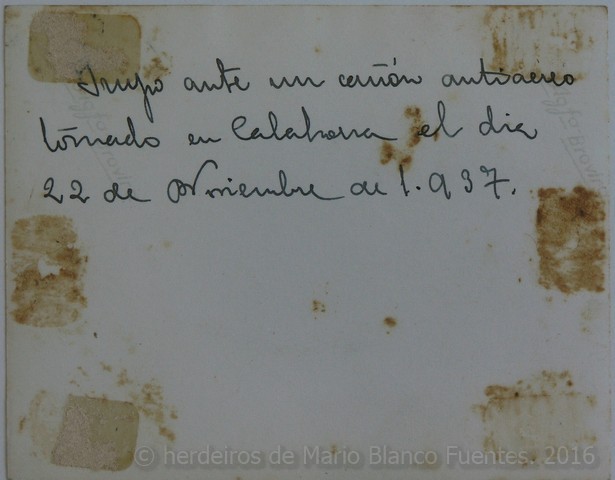 Grupo ante un cañón antiaéreo
tomado en Calahorra el dia
22 de Noviembre de 1.937.
© herdeiros de Mario Blanco Fuentes. 2016